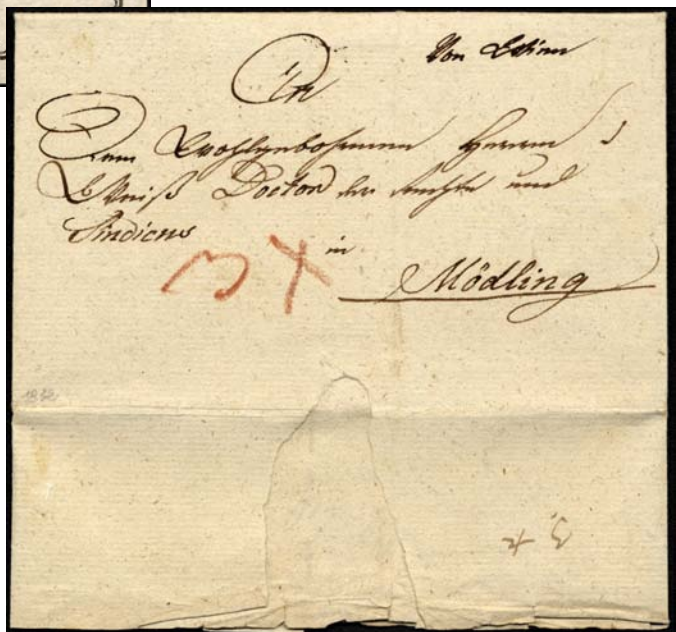 Von Wien
An
Dem Wohlgebohrnen Herrn
Weiß Doctor der Rechte und
Sindicus
in
Mödling
1832